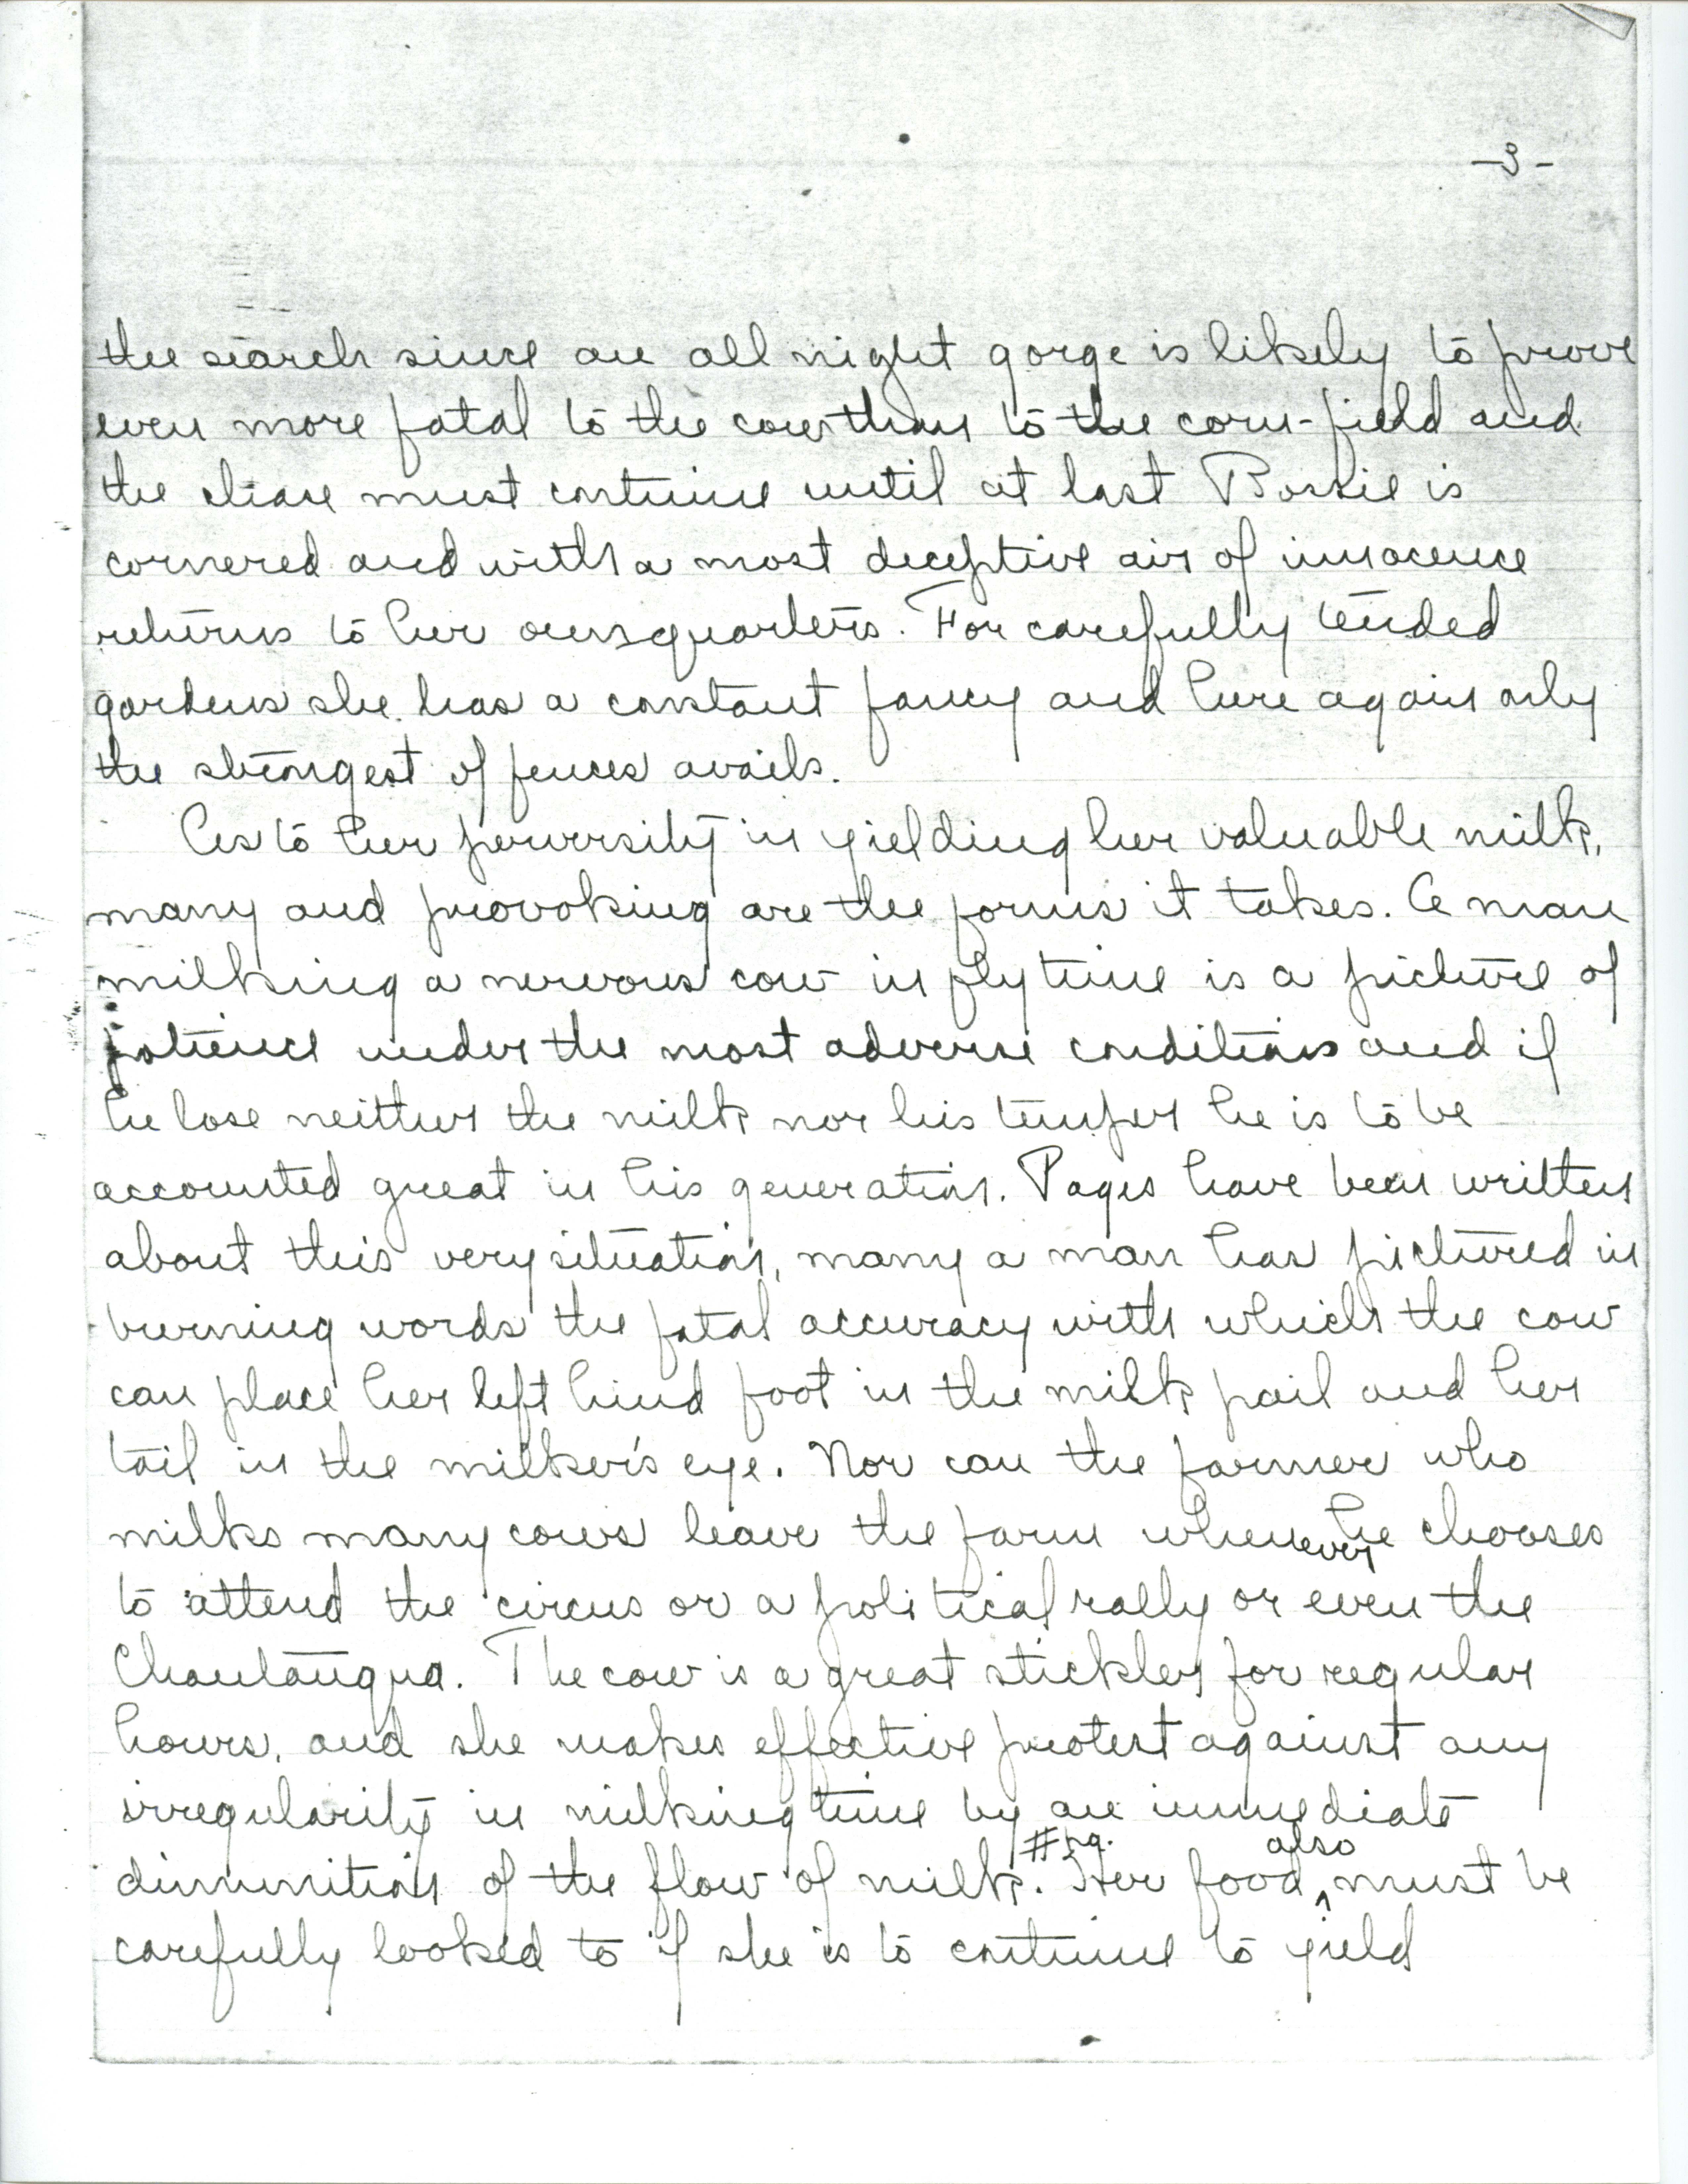 -3-
the search since an all night gorge is likely to prove
even more fatal to the cow than to the corn-field and
the chase must continue until at last Bossie is
cornered and with a most deceptive air of innocence
returns to her own quarters. For carefully tended
gardens she has a constant fancy and here again only
the strongest of fences avails.
As to her perversity in yielding her valuable milk,
many and provoking are the forms it takes. A man
milking a nervous cow in fly time is a picture of
patience under the most adverse conditions and if
he lose neither the milk nor his temper he is to be
accounted great in his generation. Pages have been written
about this very situation, many a man has pictured in
burning words the fatal accuracy with which the cow
can place her left hind foot in the milk pail and her
tail in the milker's eye. Nor can the farmer who
milks many cows leave the farm whenever he chooses
to attend the circus or a political rally or even the
Chautauqua. The cow is a great stickler for regular
hours, and she makes effective protest against any
irregularity in milking time by an immediate
diminution of the flow of milk. # pg. Her food ^ also must be
carefully looked to if she is to continue to yield